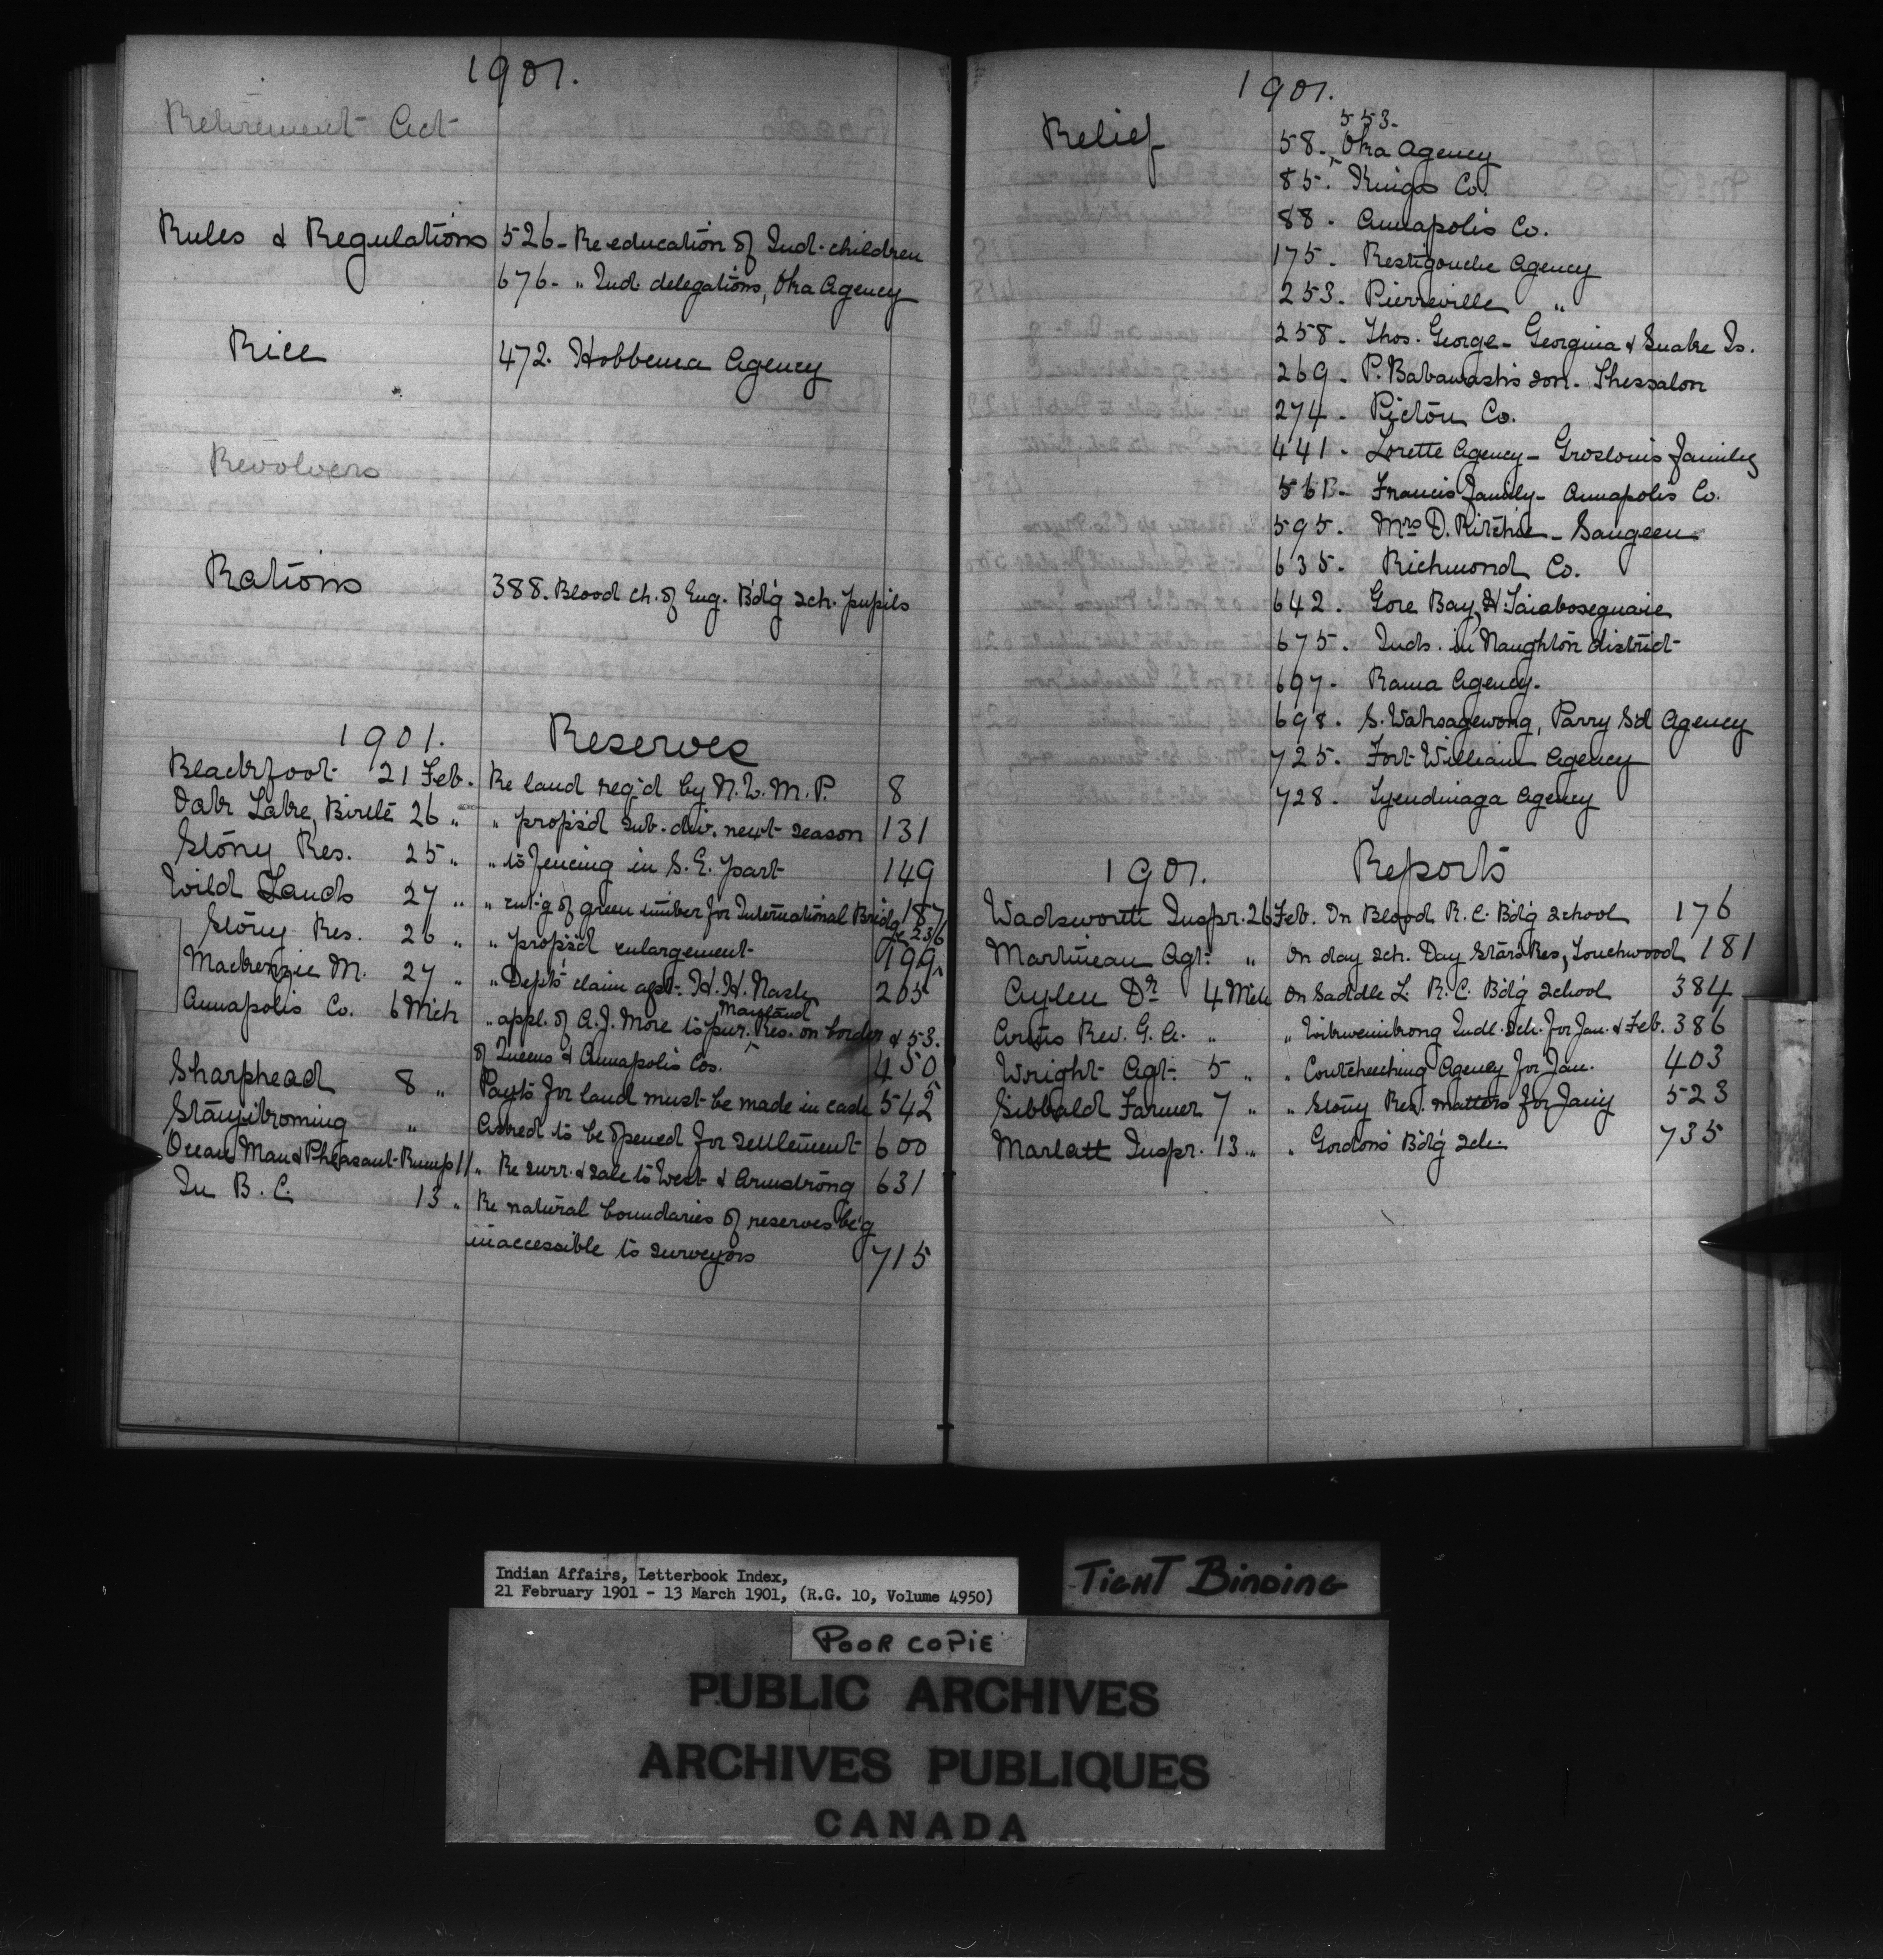 1901.
Retirement Act
Rules & Regulations 526 - Re education of Ind. children
676 - " Ind. delegations, Oka Agency
Rice 472. Hobbema Agency
Revolvers
Rations 388. Blood ch. of Eng. Bdg sch. pupils
1901. Reserves
Blackfoot 21 Feb. Re land req'd by N.W.M.P. 8
Oak Lake, Birtle 26 " " prop'sd sub-div. next season 131
Stony Res. 25 " " to fencing in S.E. part 149
Wild Lands 27 " " cut-g of green timber for International Bridge 187
& 236
Stony Res. 26 " " prop'sd enlargement 199
Mackenzie M. 27 " " Dept's claim agst. H.H. Nash 205
Annapolis Co. 6 Mch " appl. of A.J. More to pur. Maitland Res. on border & 53.
of Queens & Annapolis Cos. 450
Sharphead 8 " Payts for land must be made in cash 542
Stangikoming " Asked to be opened for settlement 600
Ocean Man & Pheasant Rump 11 " Re surr. & sale to West & Armstrong 631
In B.C. 13 " Re natural boundaries of reserves be'g
inaccessible to surveyors 715
1901.
553.
Relief 58. Oka Agency
85. Kings Co.
88. Annapolis Co.
175. Restigouche Agency
253. Pierreville "
258. Thos. George - Georgina & Snake Is.
269. P. Babawash's son - Thessalon
274. Pictou Co.
441. Lorette Agency - Groslouis family
Francis family - Annapolis Co.
595. Mrs D. Ritchie - Saugeen
635. Richmond Co.
642. Gore Bay, H.
675. Inds. in Naughton district
697. Rama Agency.
698. S. Wahsagewong, Parry Sd Agency
725. Fort William Agency
728. Tyendinaga Agency
1901. Reports
Wadsworth Inspr. 26 Feb. On Blood R.C. Bdg school 176
Martineau Agt. " On day sch. Day Stars Res, Touchwood 181
Aylen Dr 4 Mch On Saddle L. R.C. Bdg school 384
Artus Rev. G.A. " " Wikwemikong Indl. Sch. for Jan. & Feb. 386
Wright Agt. 5 " " Coutcheeching Agency for Jan. 403
Sibbald Farmer 7 " " Stony Res. matters for Jany 523
Marlatt Inspr. 13 " " Gordons Bdg sch. 735
Indian Affairs, Letterbook Index,
21 February 1901 - 13 March 1901, (R.G. 10, Volume 4950)
TIGHT BINDING
POOR COPIE
PUBLIC ARCHIVES
ARCHIVES PUBLIQUES
CANADA